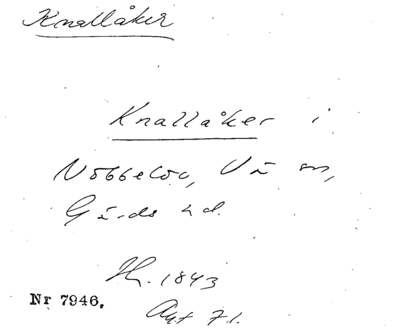 Knallåker
Knallåker i
Nöbbelöv, Vä sn,
Gärds hd.
Hr. 1843
Nr 7946.
Akt 71.